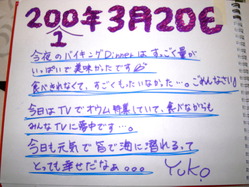 200年3月20日
1
今夜のバイキングDinnerはすっごく量が
いっぱいで美味かったです
食べきれなくて、すごくもったいなかった…。ごめんなさい!
今日はTVでオウム特集していて、食べながらも
みんなTVに夢中です…。
今日も元気で皆で酒に溺れるって
とっても幸せだなぁ。。。
YUKO